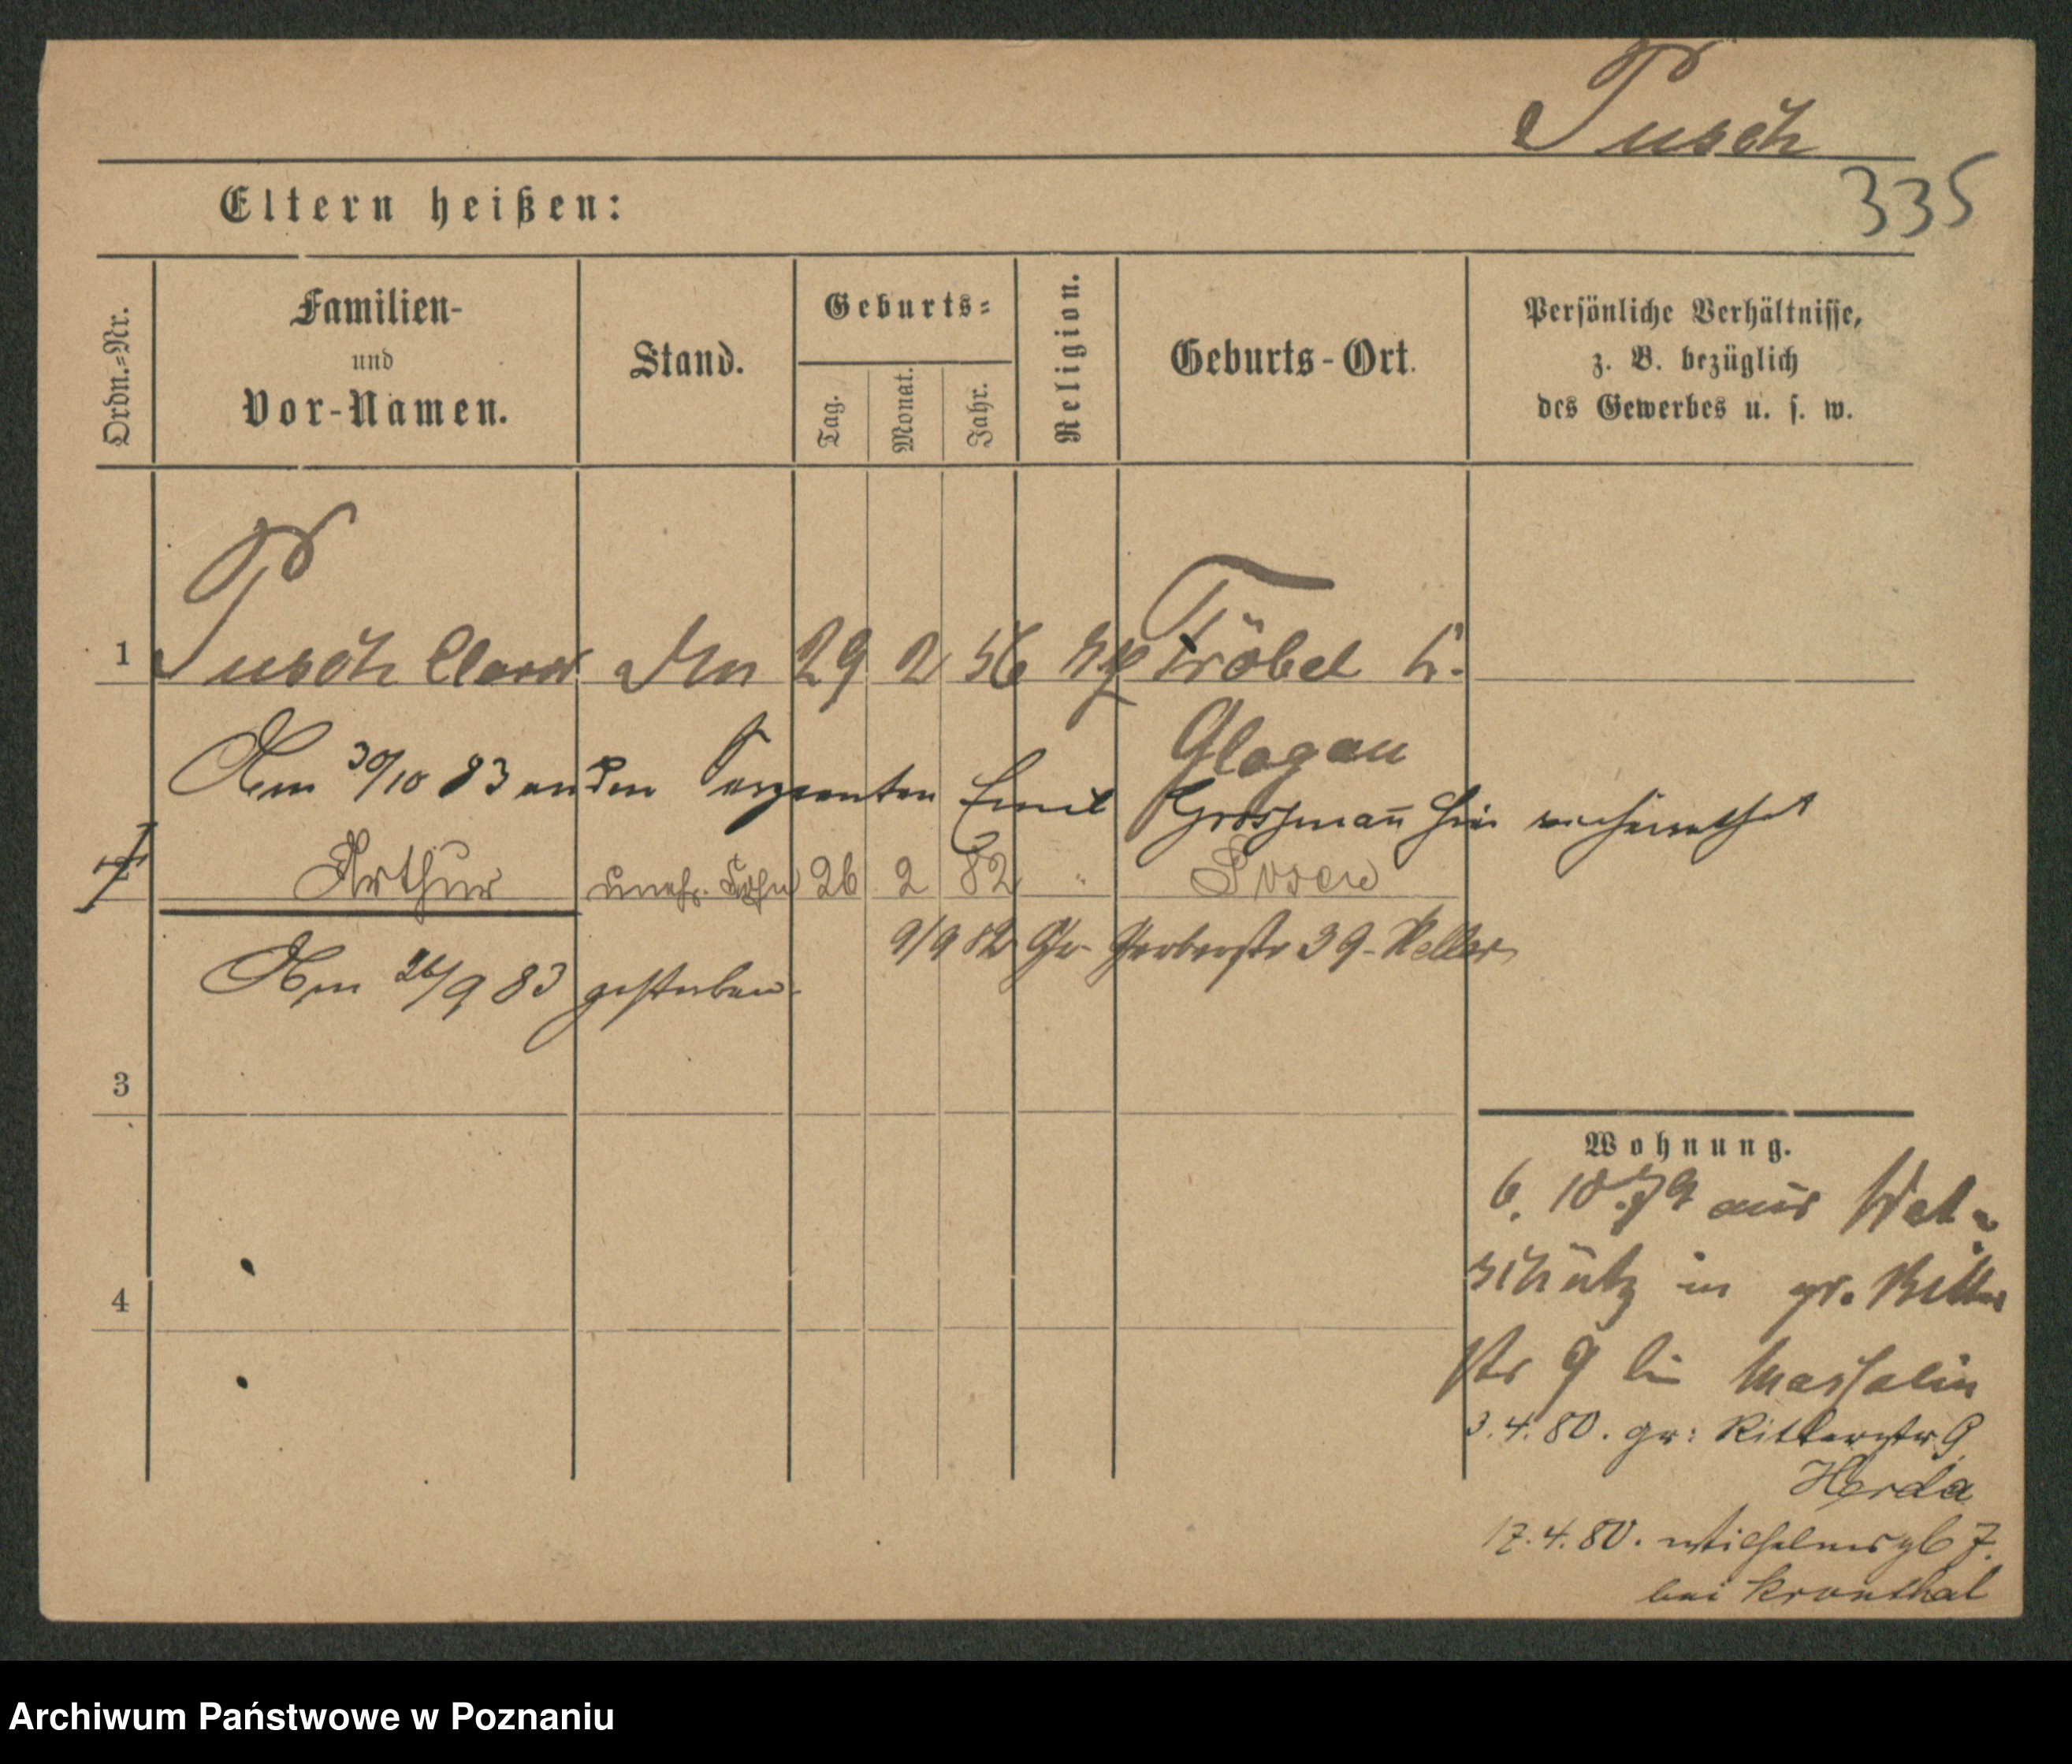 Pusch
335
Eltern heißen:
Ordn.=Nr.
Familien-
und
Vor-Namen.
Stand.
Geburts=
Tag.
Monat.
Jahr.
Religion.
Geburts-Ort.
Persönliche Verhältnisse,
z. B. bezüglich
des Gewerbes u. s. w.
1 Pusch Clara 29 2 56 Fröbel
Glogau
Am 30/10 83 an den Sergeanten Emil Grossmañ hier verheirathet
Arthur uneh. Sohn 26 2 82 " Posen
9/9 82 Gr. Gerberstr 39 - Keller
Am 26/9 83 gestorben.
3
Wohnung.
6. 10. 79 aus Wet=
schütz in gr. Ritter
4
str 9 bei
3.4.80. gr: Ritterstr 9
Herda
17.4.80. Wilhelmspl 7.
bei Kronthal
Archiwum Państwowe w Poznaniu